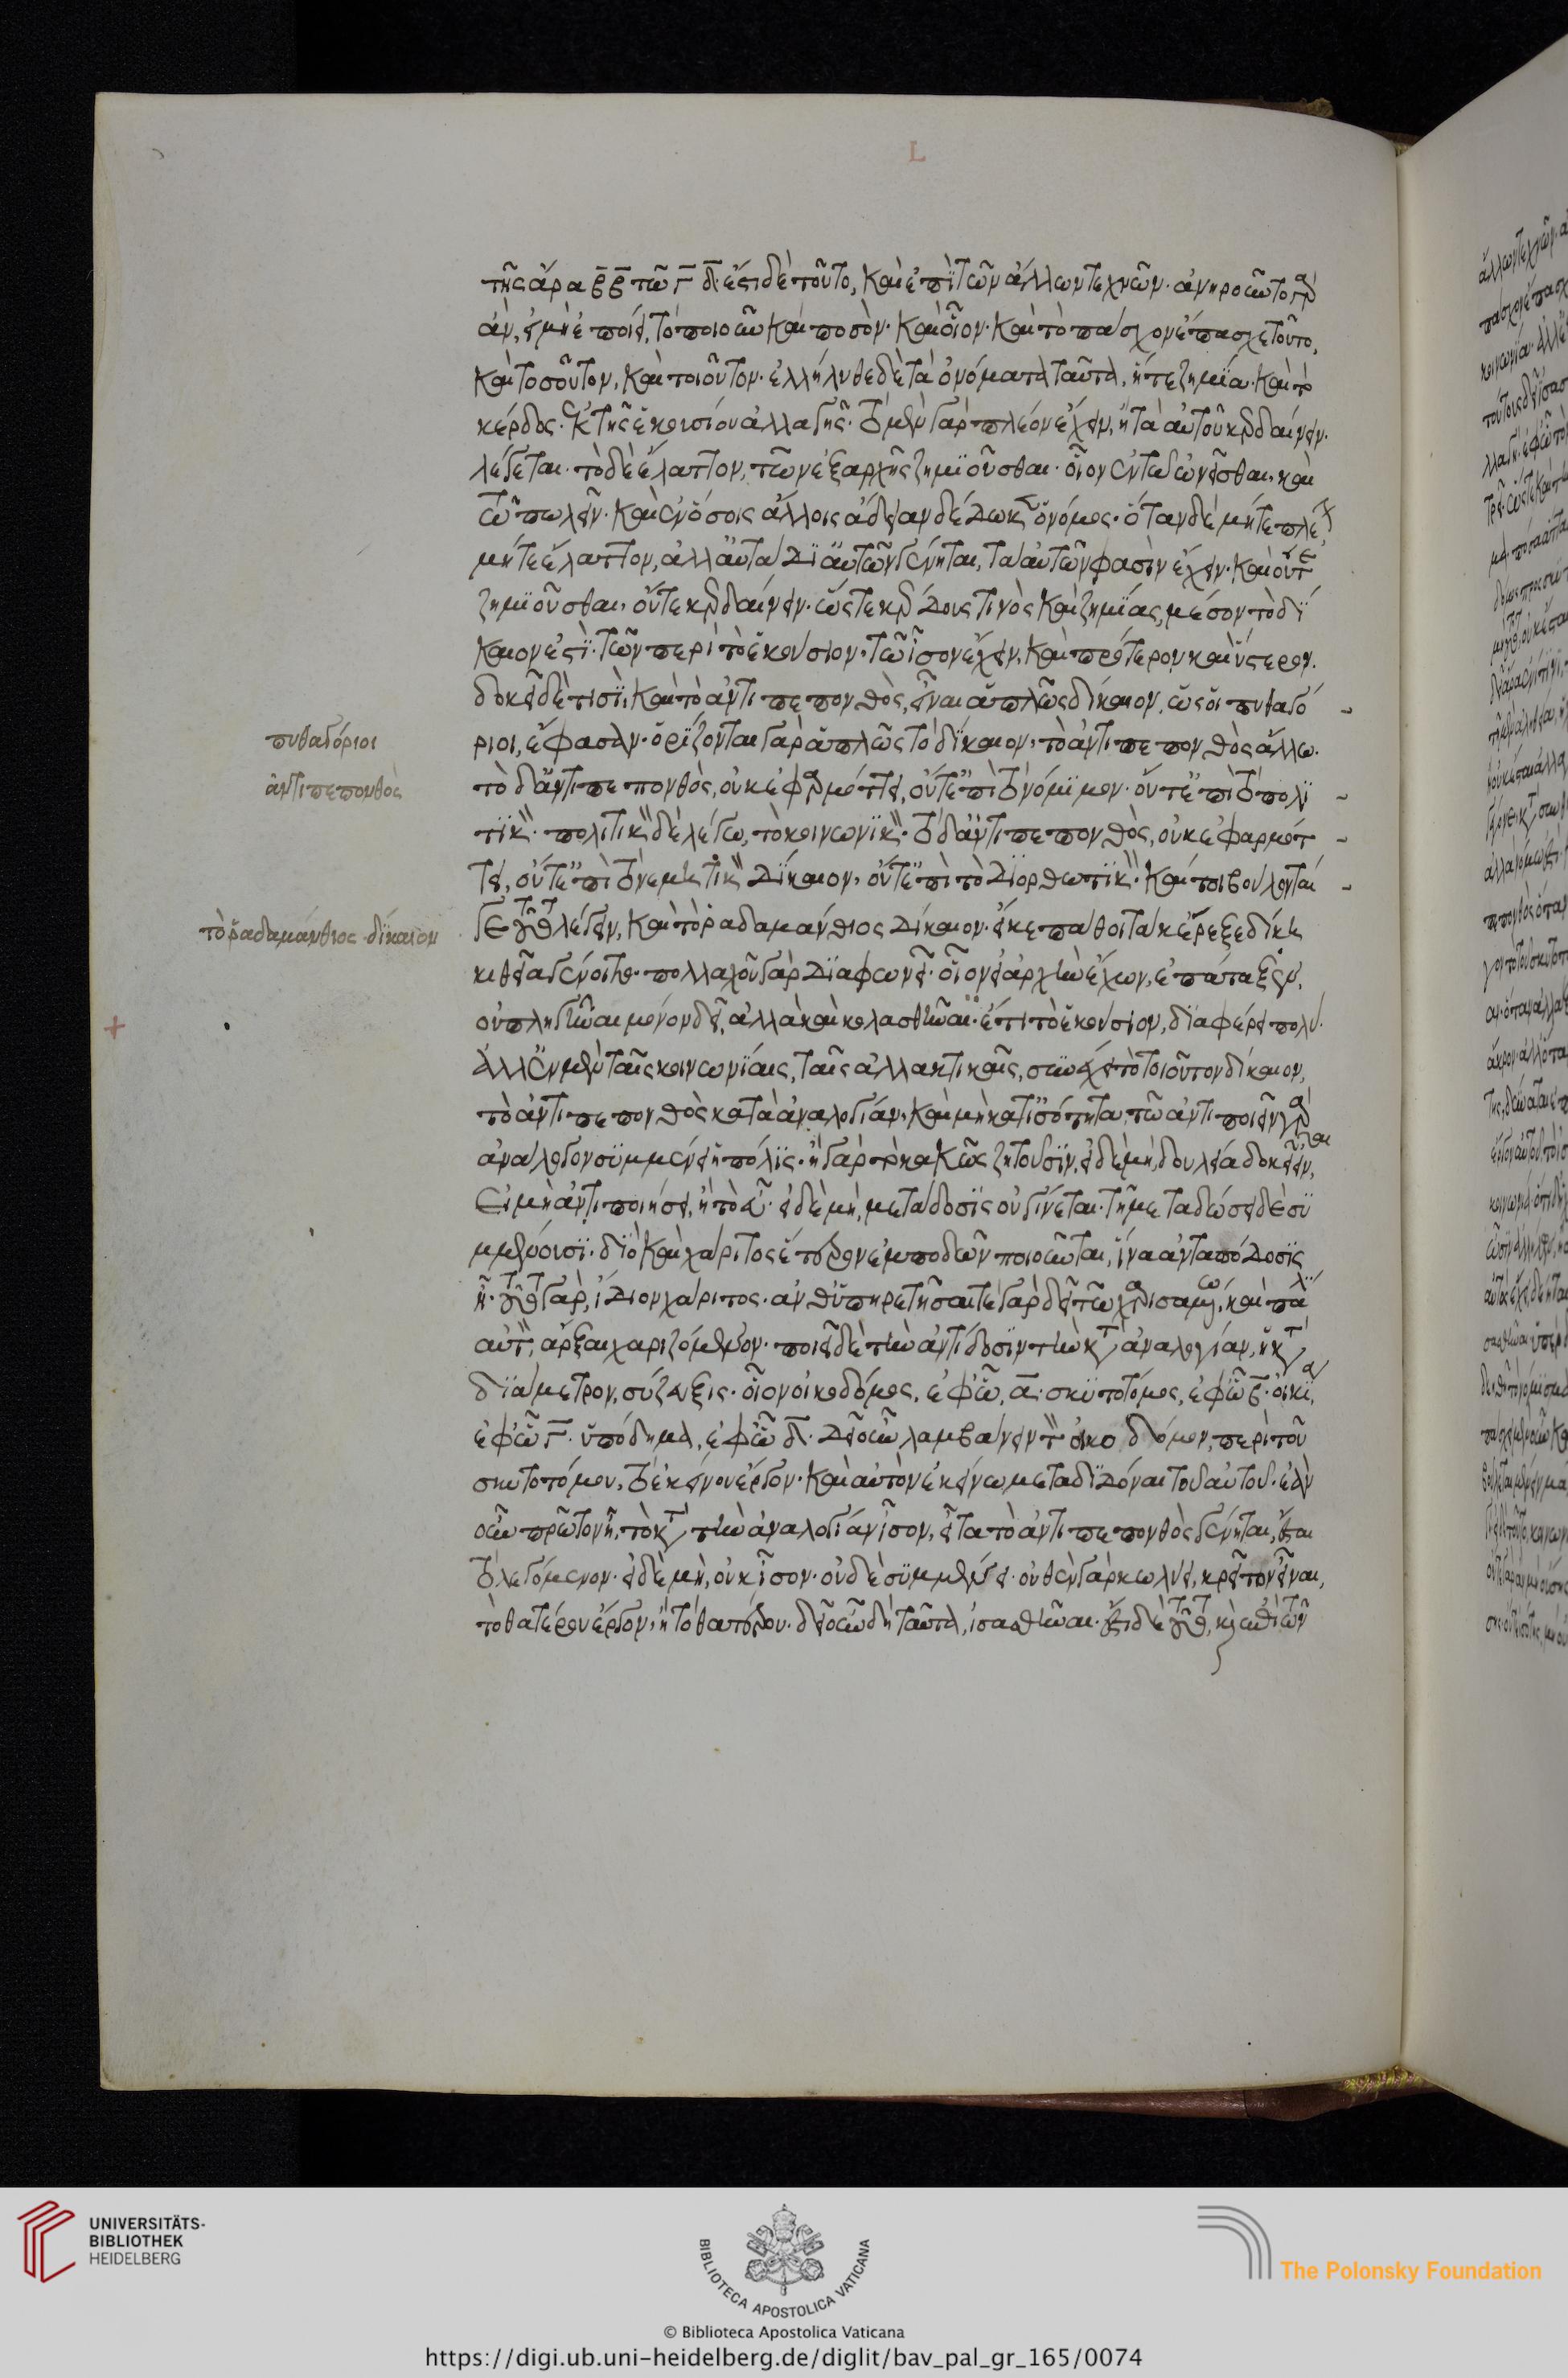 L
τῆς ἄρα β̅β̅ τῶ γ̅ δ̅. ἔστι δὲ τοῦτο, καὶ ἐπὶ τῶν ἄλλων τεχνῶν. ἀνηροῦντο γὰρ
ἂν, εἰ μὴ ἐποίει, τὸ ποιοῦν καὶ ποσὸν. καὶ οἷον. καὶ τὸ πάσχον ἔπασχε τοῦτο,
καὶ τοσοῦτον, καὶ τοιοῦτον. ἐλλήλυθε δὲ τὰ ὀνόματα ταῦτα, ἥ τε ζημία. καὶ τὸ
κέρδος. ἐκ τῆς ἑκουσίου ἀλλαγῆς. τὸ μὲν γὰρ πλέον ἔχειν, ἢ τὰ αὑτοῦ κερδαίνειν.
λέγεται. τὸ δὲ ἔλαττον, τῶν ἐξ ἀρχῆς ζημιοῦσθαι. οἷον ἐν τῶ ὠνεῖσθαι. καὶ
τῶ πωλεῖν. καὶ ἐν ὅσοις ἄλλοις ἄδειαν δέδωκεν ὁ νόμος. ὅταν δὲ μήτε πλέον
μήτε ἔλαττον, ἀλλ' αὐτὰ δι' αὑτῶν γένηται, τὰ αὑτῶν φασὶν ἔχειν. καὶ οὔτε
ζημιοῦσθαι. οὔτε κερδαίνειν. ὥστε κέρδους τινὸς καὶ ζημίας, μέσον τὸ δί
καιον ἐστὶ. τῶν περὶ τὸ ἑκούσιον. τῶ ἴσον ἔχειν, καὶ πρότερον καὶ ὕστερον.
δοκεῖ δὲ τισὶ, καὶ τὸ ἀντιπεπονθὸς, εἶναι ἁπλῶς δίκαιον, ὡς οἱ πυθαγό
πυθαγόριοι
ριοι, ἔφασαν. ὁρίζονται γὰρ ἁπλῶς τὸ δίκαιον, τὸ ἀντιπεπονθὸς ἄλλω.
ἀντιπεπονθὸς
τὸ δ' ἀντιπεπονθὸς, οὐκ ἐφαρμόττει, οὔτ' ἐπὶ τὸ νόμιμον. οὔτ' ἐπὶ τὸ πολι
τικὸν. πολιτικὸν δὲ λέγω, τὸ κοινωνικὸν. τὸ δ' ἀντιπεπονθὸς, οὐκ ἐφαρμότ
τει, οὔτ' ἐπὶ τὸ νεμητικὸν δίκαιον, οὔτ' ἐπὶ τὸ διορθωτικὸν. καί τοι βούλονται
τὸ ῥαδαμάνθιος δίκαιον
γε τοῦτο λέγειν, καὶ τὸ ῥαδαμάνθιος δίκαιον. εἴκε πάθοι τά κ' ἔρεξε δίκη
κ' ἰθεῖα γένοιτο. πολλαχοῦ γὰρ διαφωνεῖ. οἷον εἰ ἀρχὴν ἔχων, ἐπάταξεν,
οὐ πληγῆναι μόνον δεῖ, ἀλλὰ καὶ κολασθῆναι. ἔτι τὸ ἑκούσιον, διαφέρει πολύ.
ἀλλ' ἐν μὲν ταῖς κοινωνίαις, ταῖς ἀλλακτικαῖς, συνέχει τὸ τοιοῦτον δίκαιον,
τὸ ἀντιπεπονθὸς κατὰ ἀναλογίαν, καὶ μὴ κατ' ἰσότητα. τῶ ἀντιποιεῖν γὰρ
ἀνάλογον συμμένει ἡ πόλις. ἢ γὰρ τὸ κακῶς ζητοῦσιν, εἰ δὲ μὴ, δουλεία δοκεῖ εἶναι,
εἰ μὴ ἀντιποιήσει, ἢ τὸ εὖ. εἰ δὲ μὴ, μετάδοσις οὐ γίνεται. τῆ μεταδώσει δὲ συ
μμένουσι. διὸ καὶ χάριτος ἱερὸν ἐμποδὼν ποιοῦνται, ἵνα ἀνταπόδοσις
ᾖ. τοῦτο γὰρ, ἴδιον χάριτος. ἀνθυπηρετῆσαί τε γὰρ δεῖ τῶ χαρισαμένω, καὶ πάλιν
αὐτὸν, ἄρξαι χαριζόμενον. ποιεῖ δὲ τὴν ἀντίδοσιν τὴν κατ' ἀναλογίαν, ἡ κατὰ
διάμετρον, σύζευξις. οἷον οἰκοδόμος, ἐφ' ὧ, α̅. σκυτοτόμος, ἐφ' ὧ β̅. οἰκία,
ἐφ' ὧ γ̅. ὑπόδημα, ἐφ' ὧ δ̅. δεῖ οὖν λαμβάνειν τὸν οἰκοδόμον, περὶ τοῦ
σκυτοτόμου, τὸ ἐκείνου ἔργον. καὶ αὐτὸν ἐκείνω μεταδιδόναι τοῦ αὑτοῦ. ἐὰν
οὖν πρῶτον ᾖ, τὸ κατὰ τὴν ἀναλογίαν ἴσον, εἶτα τὸ ἀντιπεπονθὸς γένηται, ἔσται
τὸ λεγόμενον. εἰ δὲ μὴ, οὐκ ἴσον. οὐδὲ συμμένει. οὐθὲν γὰρ κωλύει, κρεῖττον εἶναι,
τὸ θατέρου ἔργον, ἢ τὸ θατέρου. δεῖ οὖν δὴ ταῦτα, ἰσασθῆναι. ἔστι δὲ τοῦτο, καὶ ἐπὶ τῶν
UNIVERSITÄTS-
BIBLIOTHEK
HEIDELBERG
BIBLIOTECA APOSTOLICA VATICANA
The Polonsky Foundation
© Biblioteca Apostolica Vaticana
https://digi.ub.uni-heidelberg.de/diglit/bav_pal_gr_165/0074